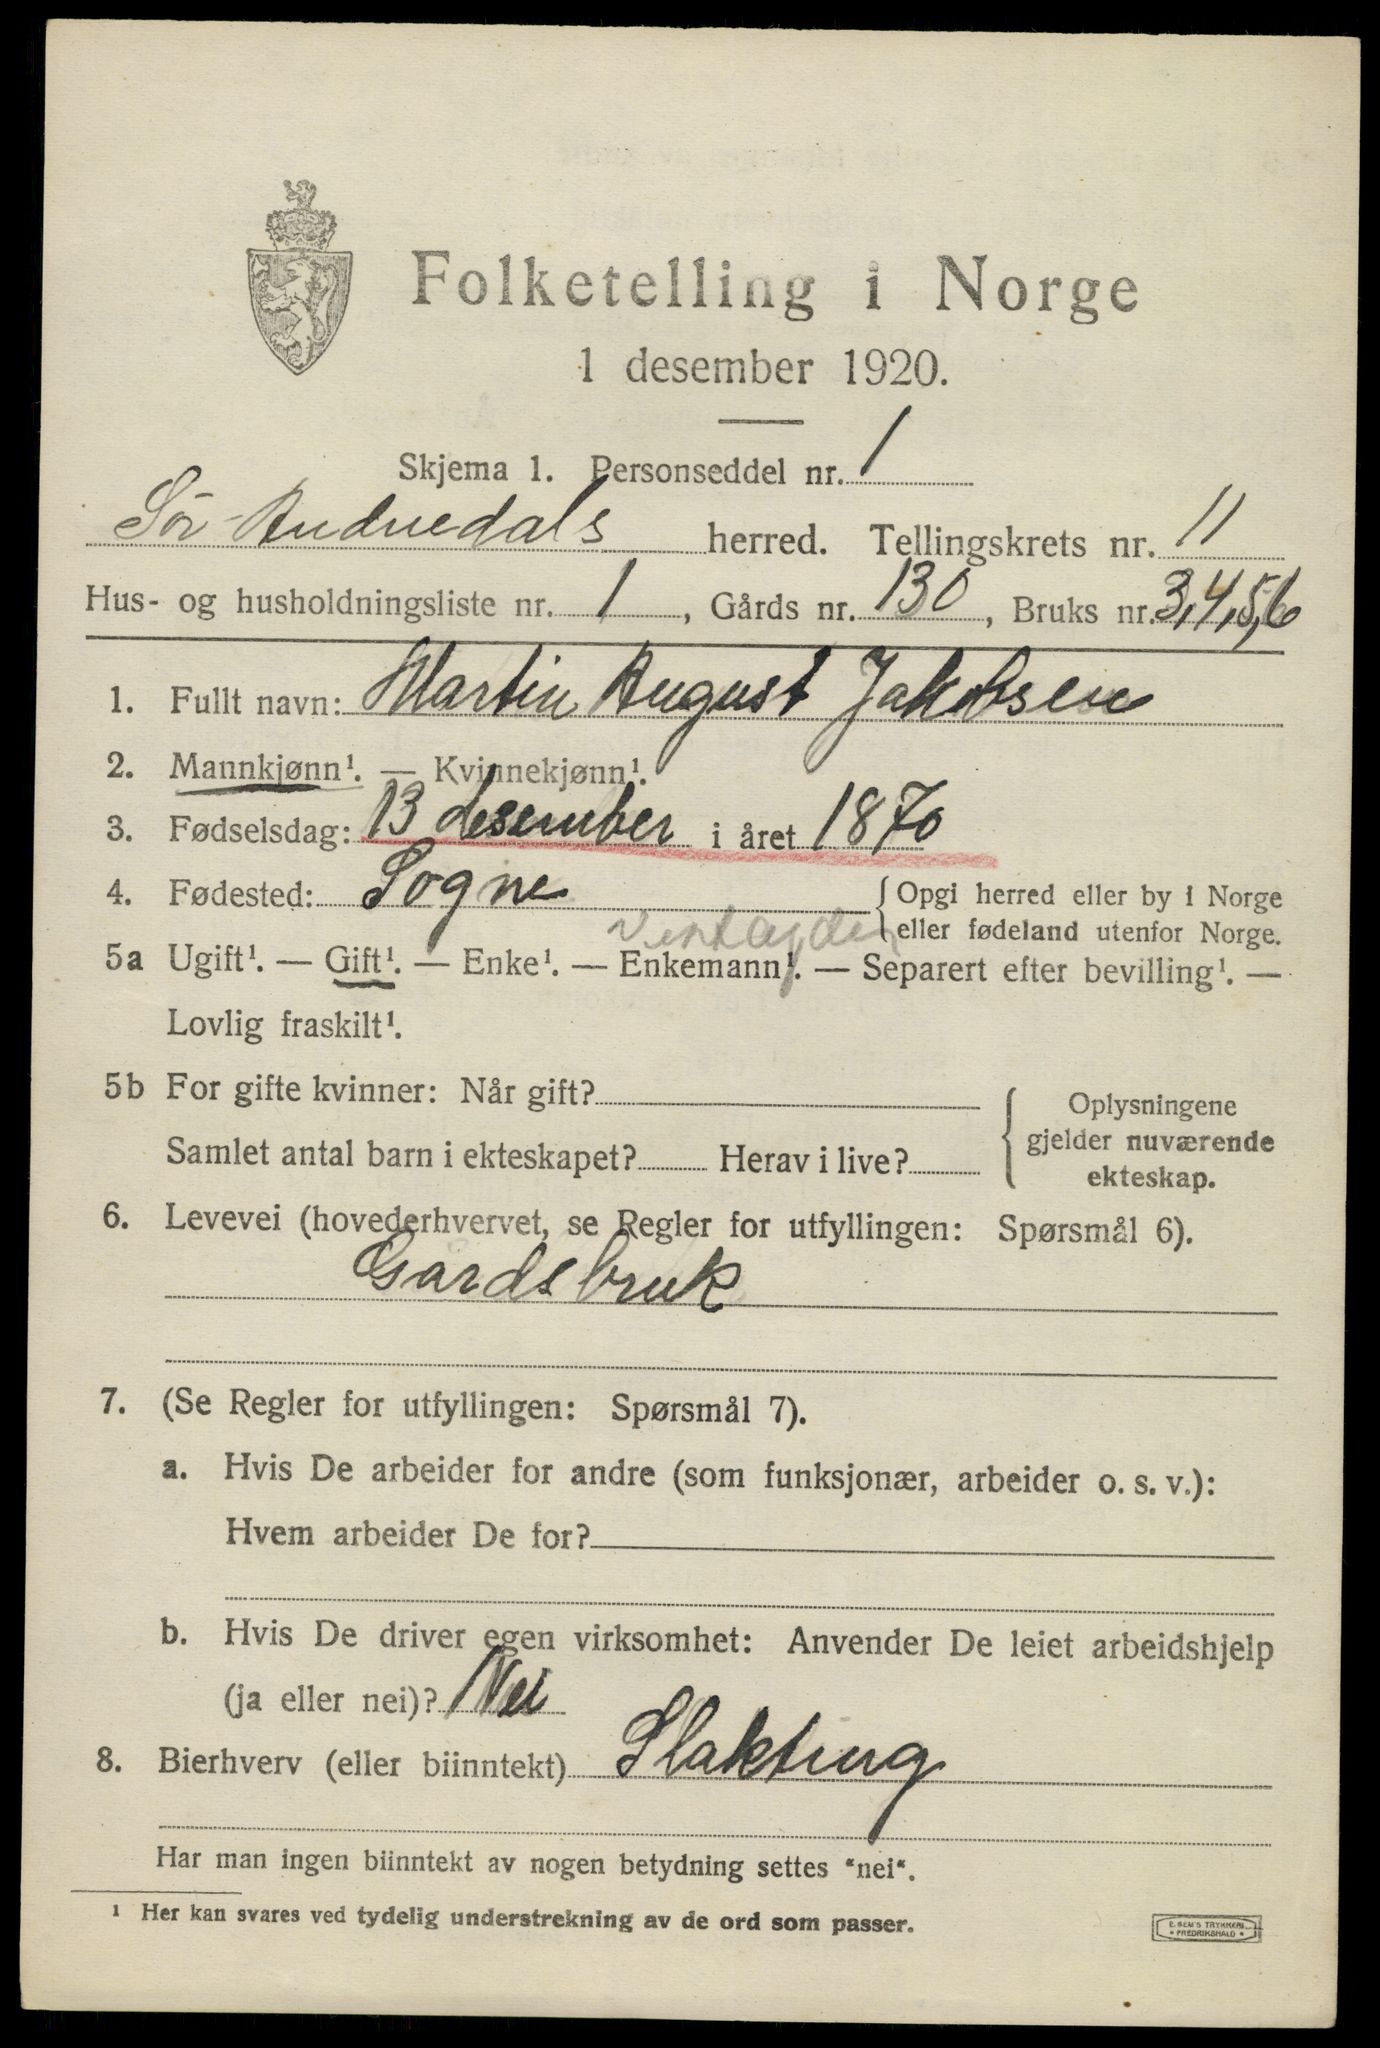 Folketelling i Norge
1 desember 1920.
Skjema 1. Personseddel nr. 1
Sör-Audnedals herred. Tellingskrets nr. 11
Hus- og husholdningsliste nr. 1, Gårds nr. 130, Bruks nr. 3,4,5,6
1. Fullt navn: Martin August Jakobsen
2. Mannkjønn¹. — Kvinnekjønn¹.
3. Fødselsdag: 13 desember i året 1870
4. Fødested: Sogne {Opgi herred eller by i Norge
eller fødeland utenfor Norge.
Vestagder
5a Ugift¹. — Gift¹. — Enke¹. — Enkemann¹. — Separert efter bevilling¹. —
Lovlig fraskilt¹.
5b For gifte kvinner: Når gift?
Samlet antal barn i ekteskapet? Herav i live?
{ Oplysningene
gjelder nuværende
ekteskap.
6. Levevei (hovederhvervet, se Regler for utfyllingen: Spørsmål 6).
Gårdsbruk
7. (Se Regler for utfyllingen: Spørsmål 7).
a. Hvis De arbeider for andre (som funksjonær, arbeider o. s. v.):
Hvem arbeider De for?
b. Hvis De driver egen virksomhet: Anvender De leiet arbeidshjelp
(ja eller nei)? Nei
8. Bierhverv (eller biinntekt) Slakting
Har man ingen biinntekt av nogen betydning settes "nei".
¹ Her kan svares ved tydelig understrekning av de ord som passer.
E. SEM'S TRYKKERI
• FREDRIKSHALD •